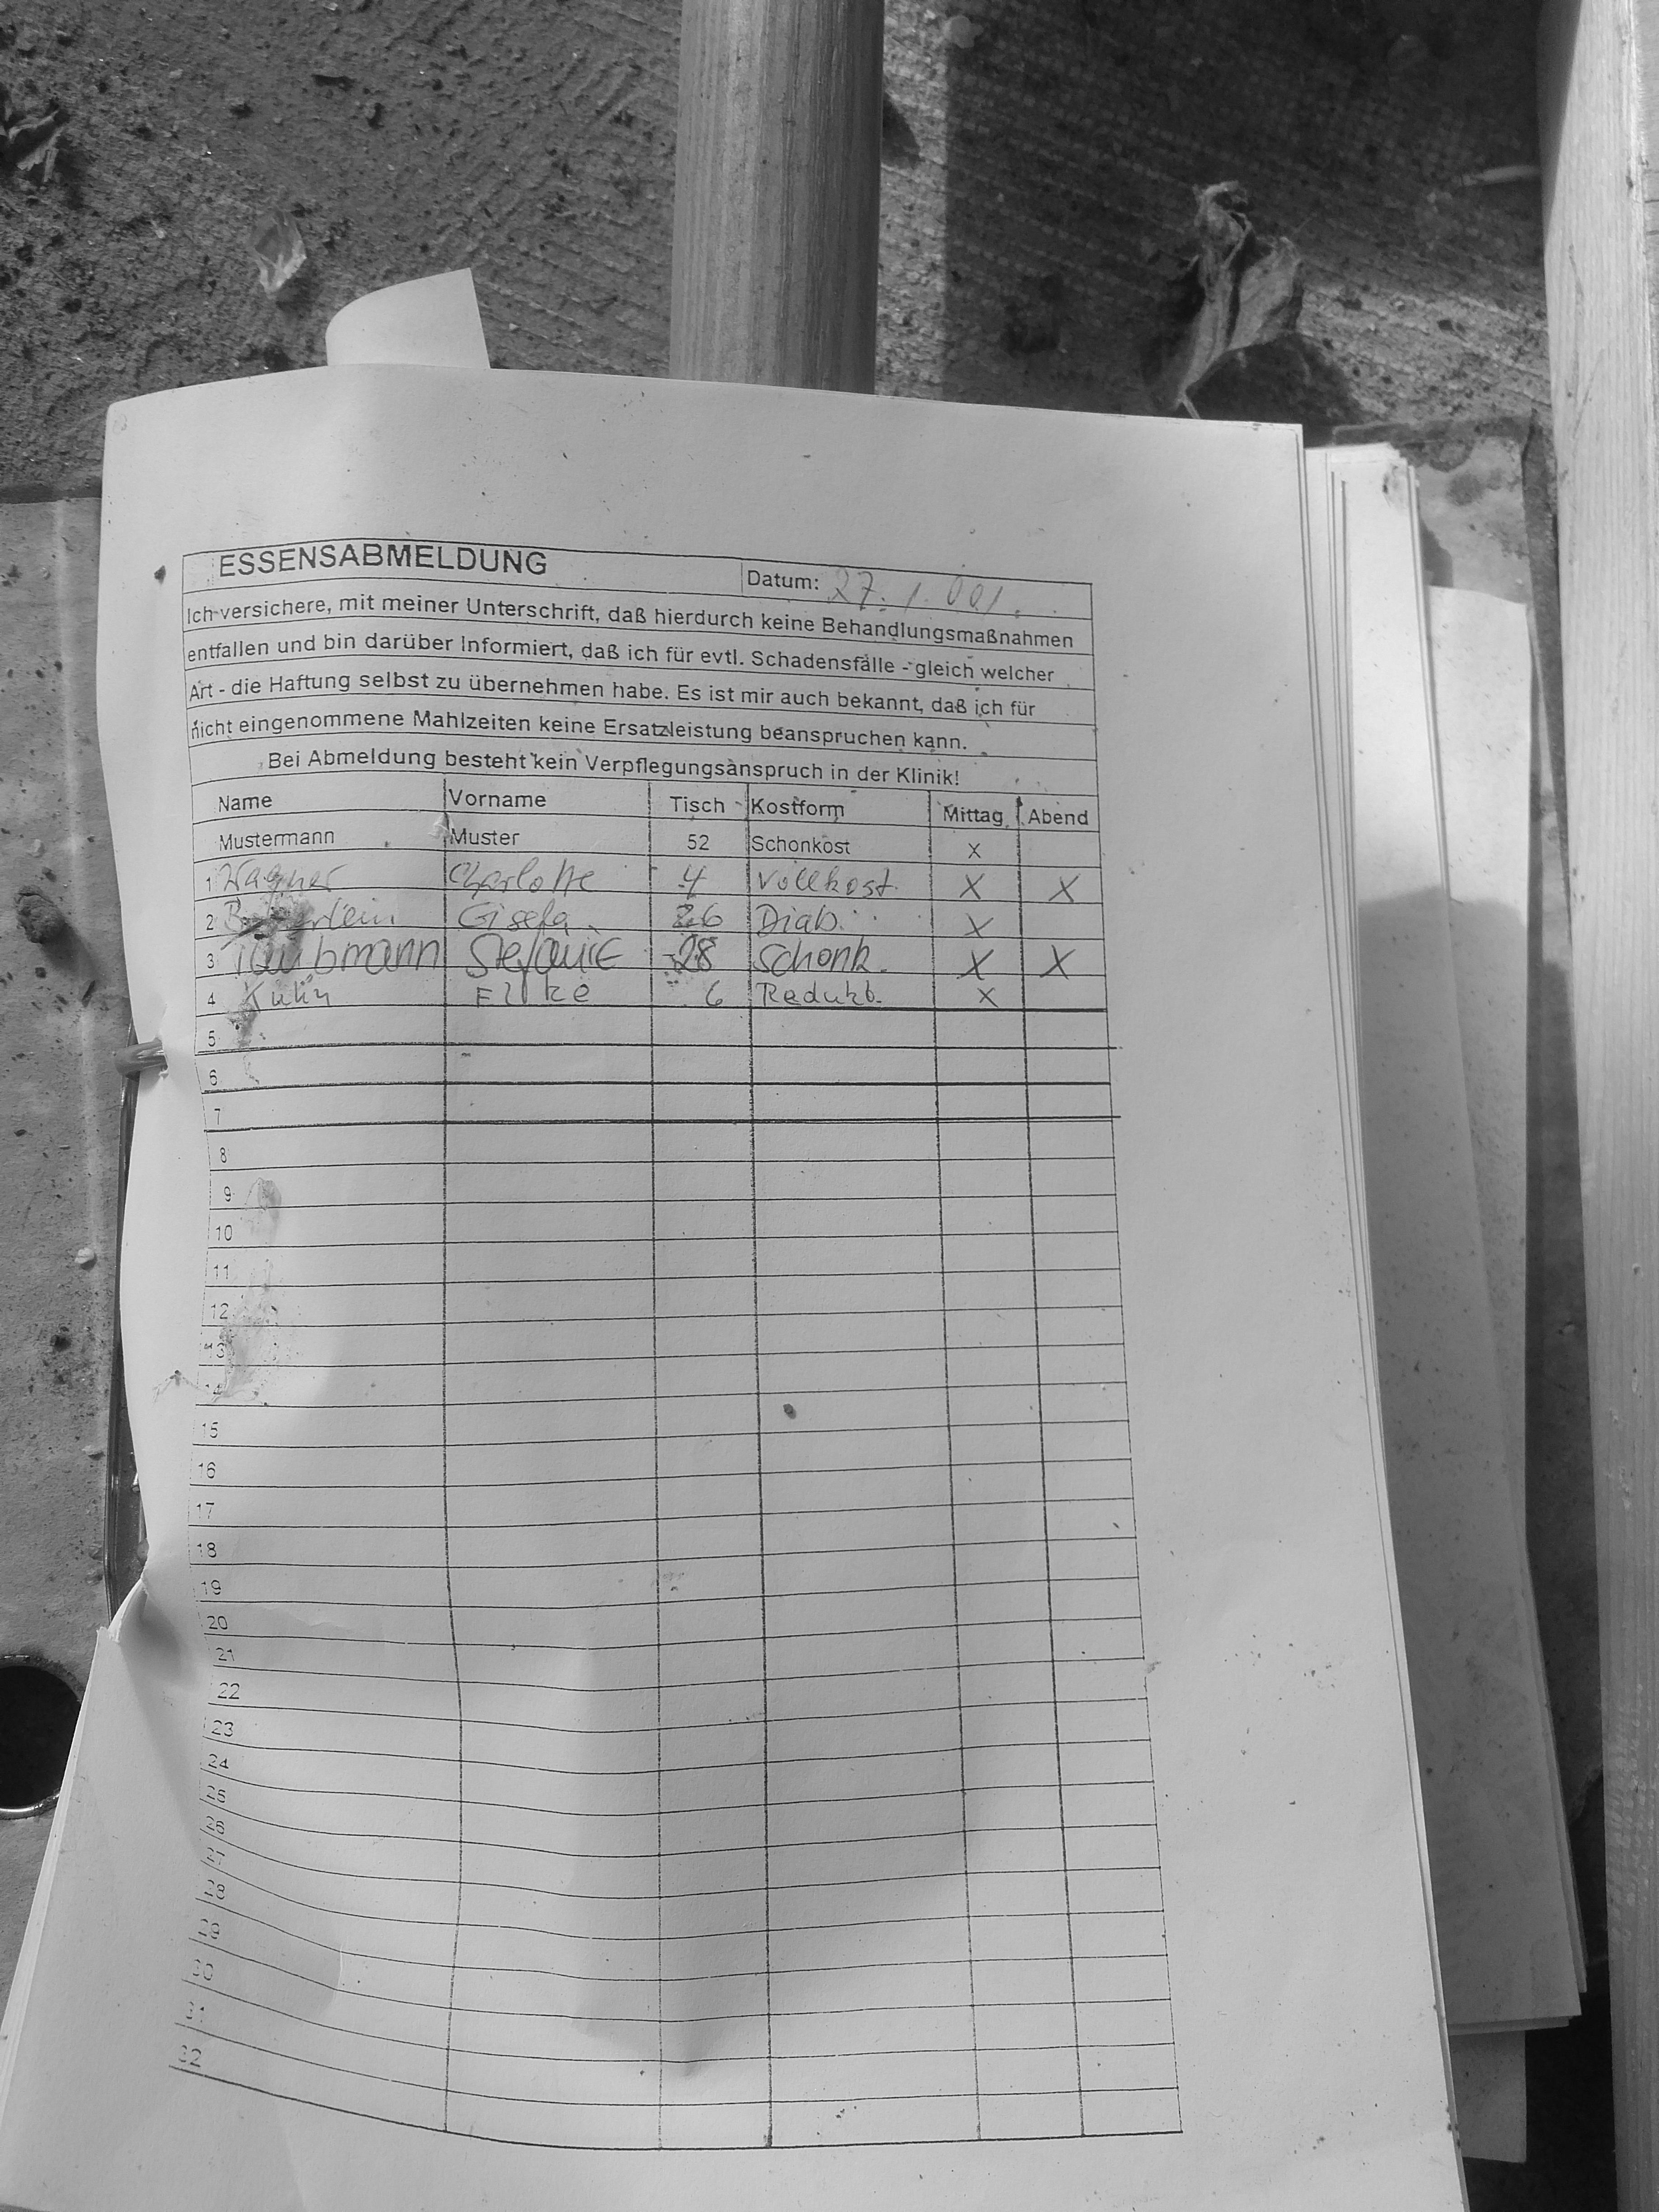 ESSENSABMELDUNG Datum: 27.1.001.
Ich versichere, mit meiner Unterschrift, daß hierdurch keine Behandlungsmaßnahmen
entfallen und bin darüber Informiert, daß ich für evtl. Schadensfälle - gleich welcher
Art - die Haftung selbst zu übernehmen habe. Es ist mir auch bekannt, daß ich für
nicht eingenommene Mahlzeiten keine Ersatzleistung beanspruchen kann.
Bei Abmeldung besteht kein Verpflegungsanspruch in der Klinik!
Name Vorname Tisch Kostform Mittag Abend
Mustermann Muster 52 Schonkost x
1 Wagner Charlotte 4 Vollkost. X X
2 Gisela 26 Diab. X
3 Taubmann Stefanie 28 Schonk. X X
4 Elke 6 Redukt. X
5
6
7
8
9
10
11
12
13
14
15
16
17
18
19
20
21
22
23
24
25
26
27
28
29
30
31
32